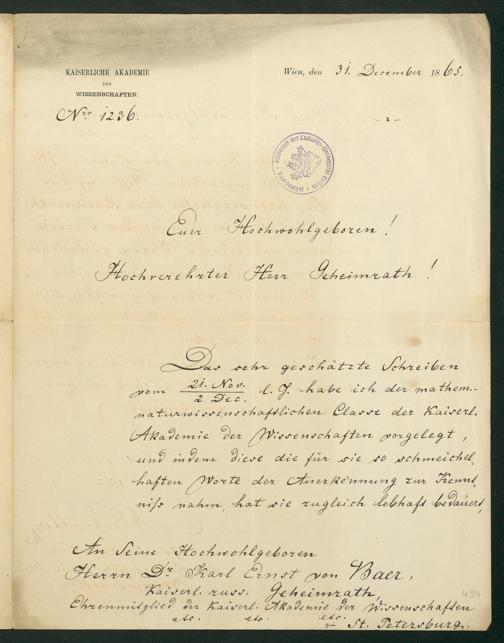 KAISERLICHE AKADEMIE
DER
WISSENSCHAFTEN.
Nro 1236.
Wien, den 31. December 1865.
Euer Hochwohlgeboren!
Hochverehrter Herr Geheimrath!
Das sehr geschätzte Schreiben
vom 21. Nov. / 2 Dec. l. J. habe ich der mathem.-
naturwissenschaftlichen Classe der Kaiserl.
Akademie der Wissenschaften vorgelegt,
und indem diese die für sie so schmeichel-
haften Worte der Anerkennung zur Kennt-
niß nahm, hat sie zugleich lebhaft bedauert,
An Seine Hochwohlgeboren
Herrn Dr. Karl Ernst von Baer,
Kaiserl. russ. Geheimrath,
Ehrenmitglied der Kaiserl. Akademie der Wissenschaften
etc. etc. etc.
St. Petersburg.
434